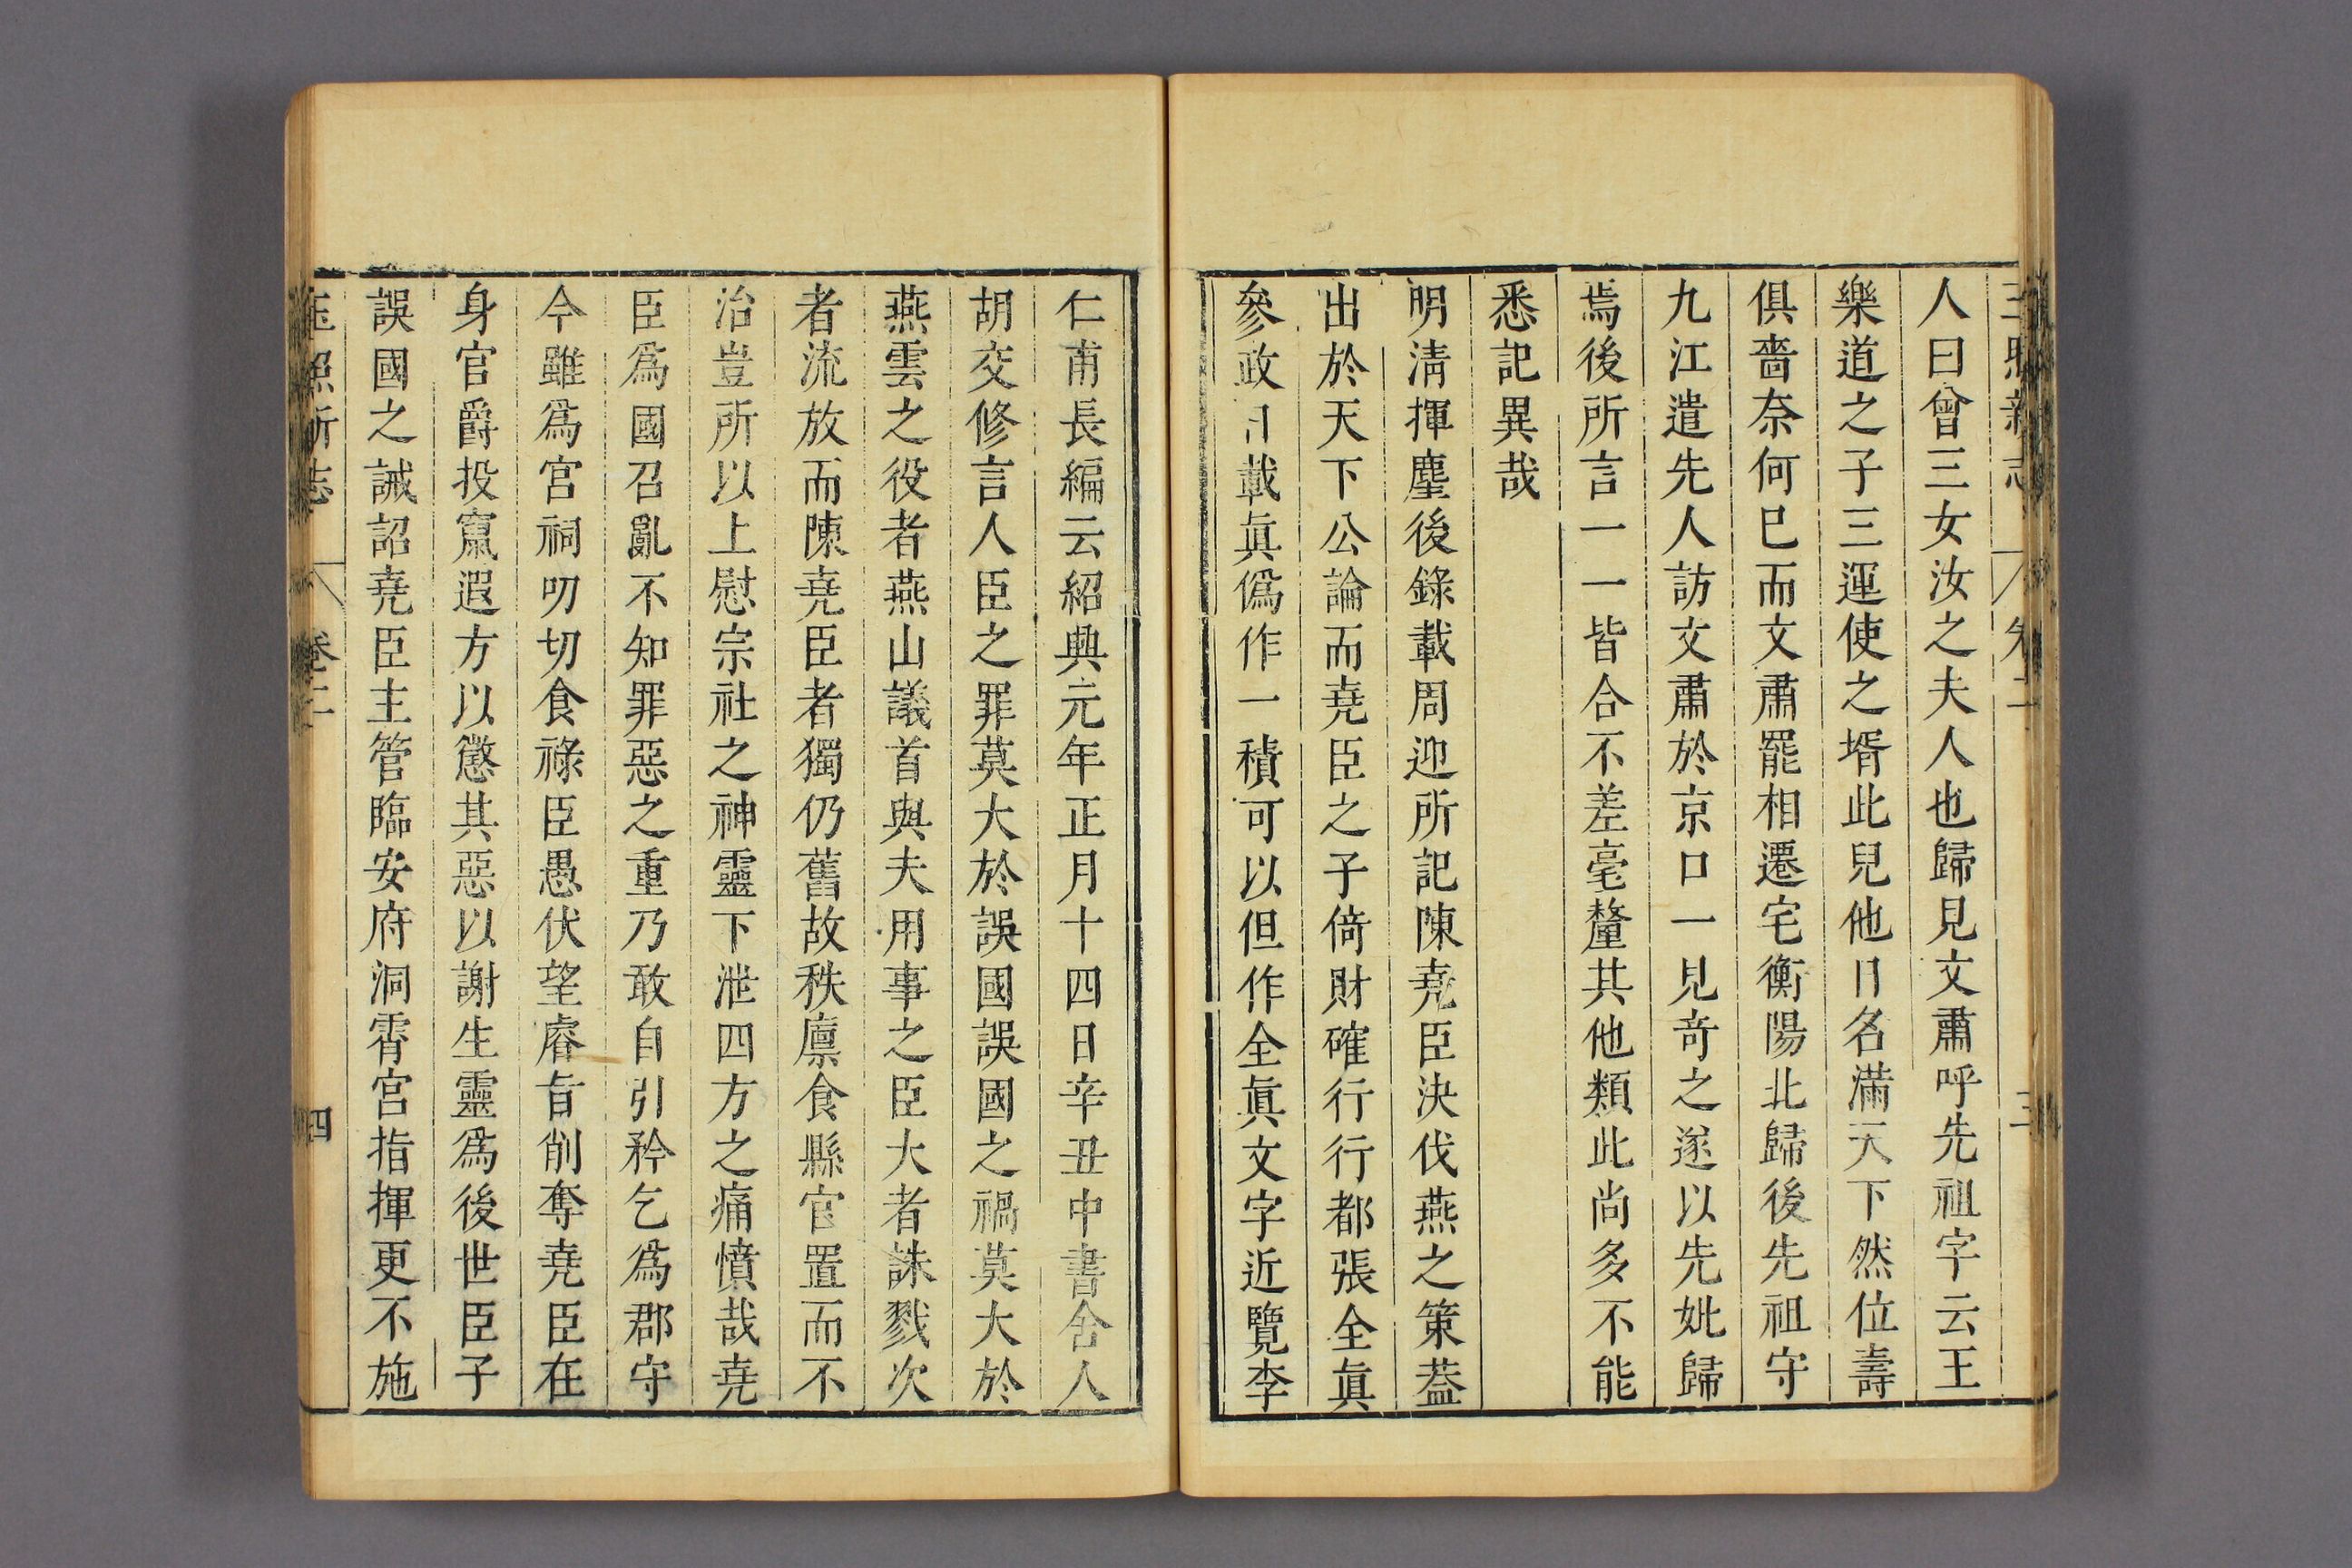 人曰曾三女汝之夫人也歸見文肅呼先祖字云王
樂道之子三運使之壻此兒他日名滿天下然位壽
俱嗇奈何已而文肅罷相遷宅衡陽北歸後先祖守
九江遣先人訪文肅於京口一見奇之遂以先妣歸
焉後所言一一皆合不差毫釐其他類此尚多不能
悉記異哉
明淸揮麈後錄載周迎所記陳堯臣決伐燕之策葢
出於天下公論而堯臣之子倚財確行行都張全眞
參政日載眞僞作一積可以但作全眞文字近覽李
仁甫長編云紹興元年正月十四日辛丑中書舍人
胡交修言人臣之罪莫大於誤國誤國之禍莫大於
燕雲之役者燕山議首與夫用事之臣大者誅戮次
者流放而陳堯臣者獨仍舊故秩廩食縣官置而不
治豈所以上慰宗社之神靈下泄四方之痛憤哉堯
臣爲國召亂不知罪惡之重乃敢自引矜乞爲郡守
今雖爲宮祠叨切食祿臣愚伏望睿旨削奪堯臣在
身官爵投竄遐方以懲其惡以謝生靈爲後世臣子
誤國之誡詔堯臣主管臨安府洞霄宮指揮更不施
玉照新志 卷二 四